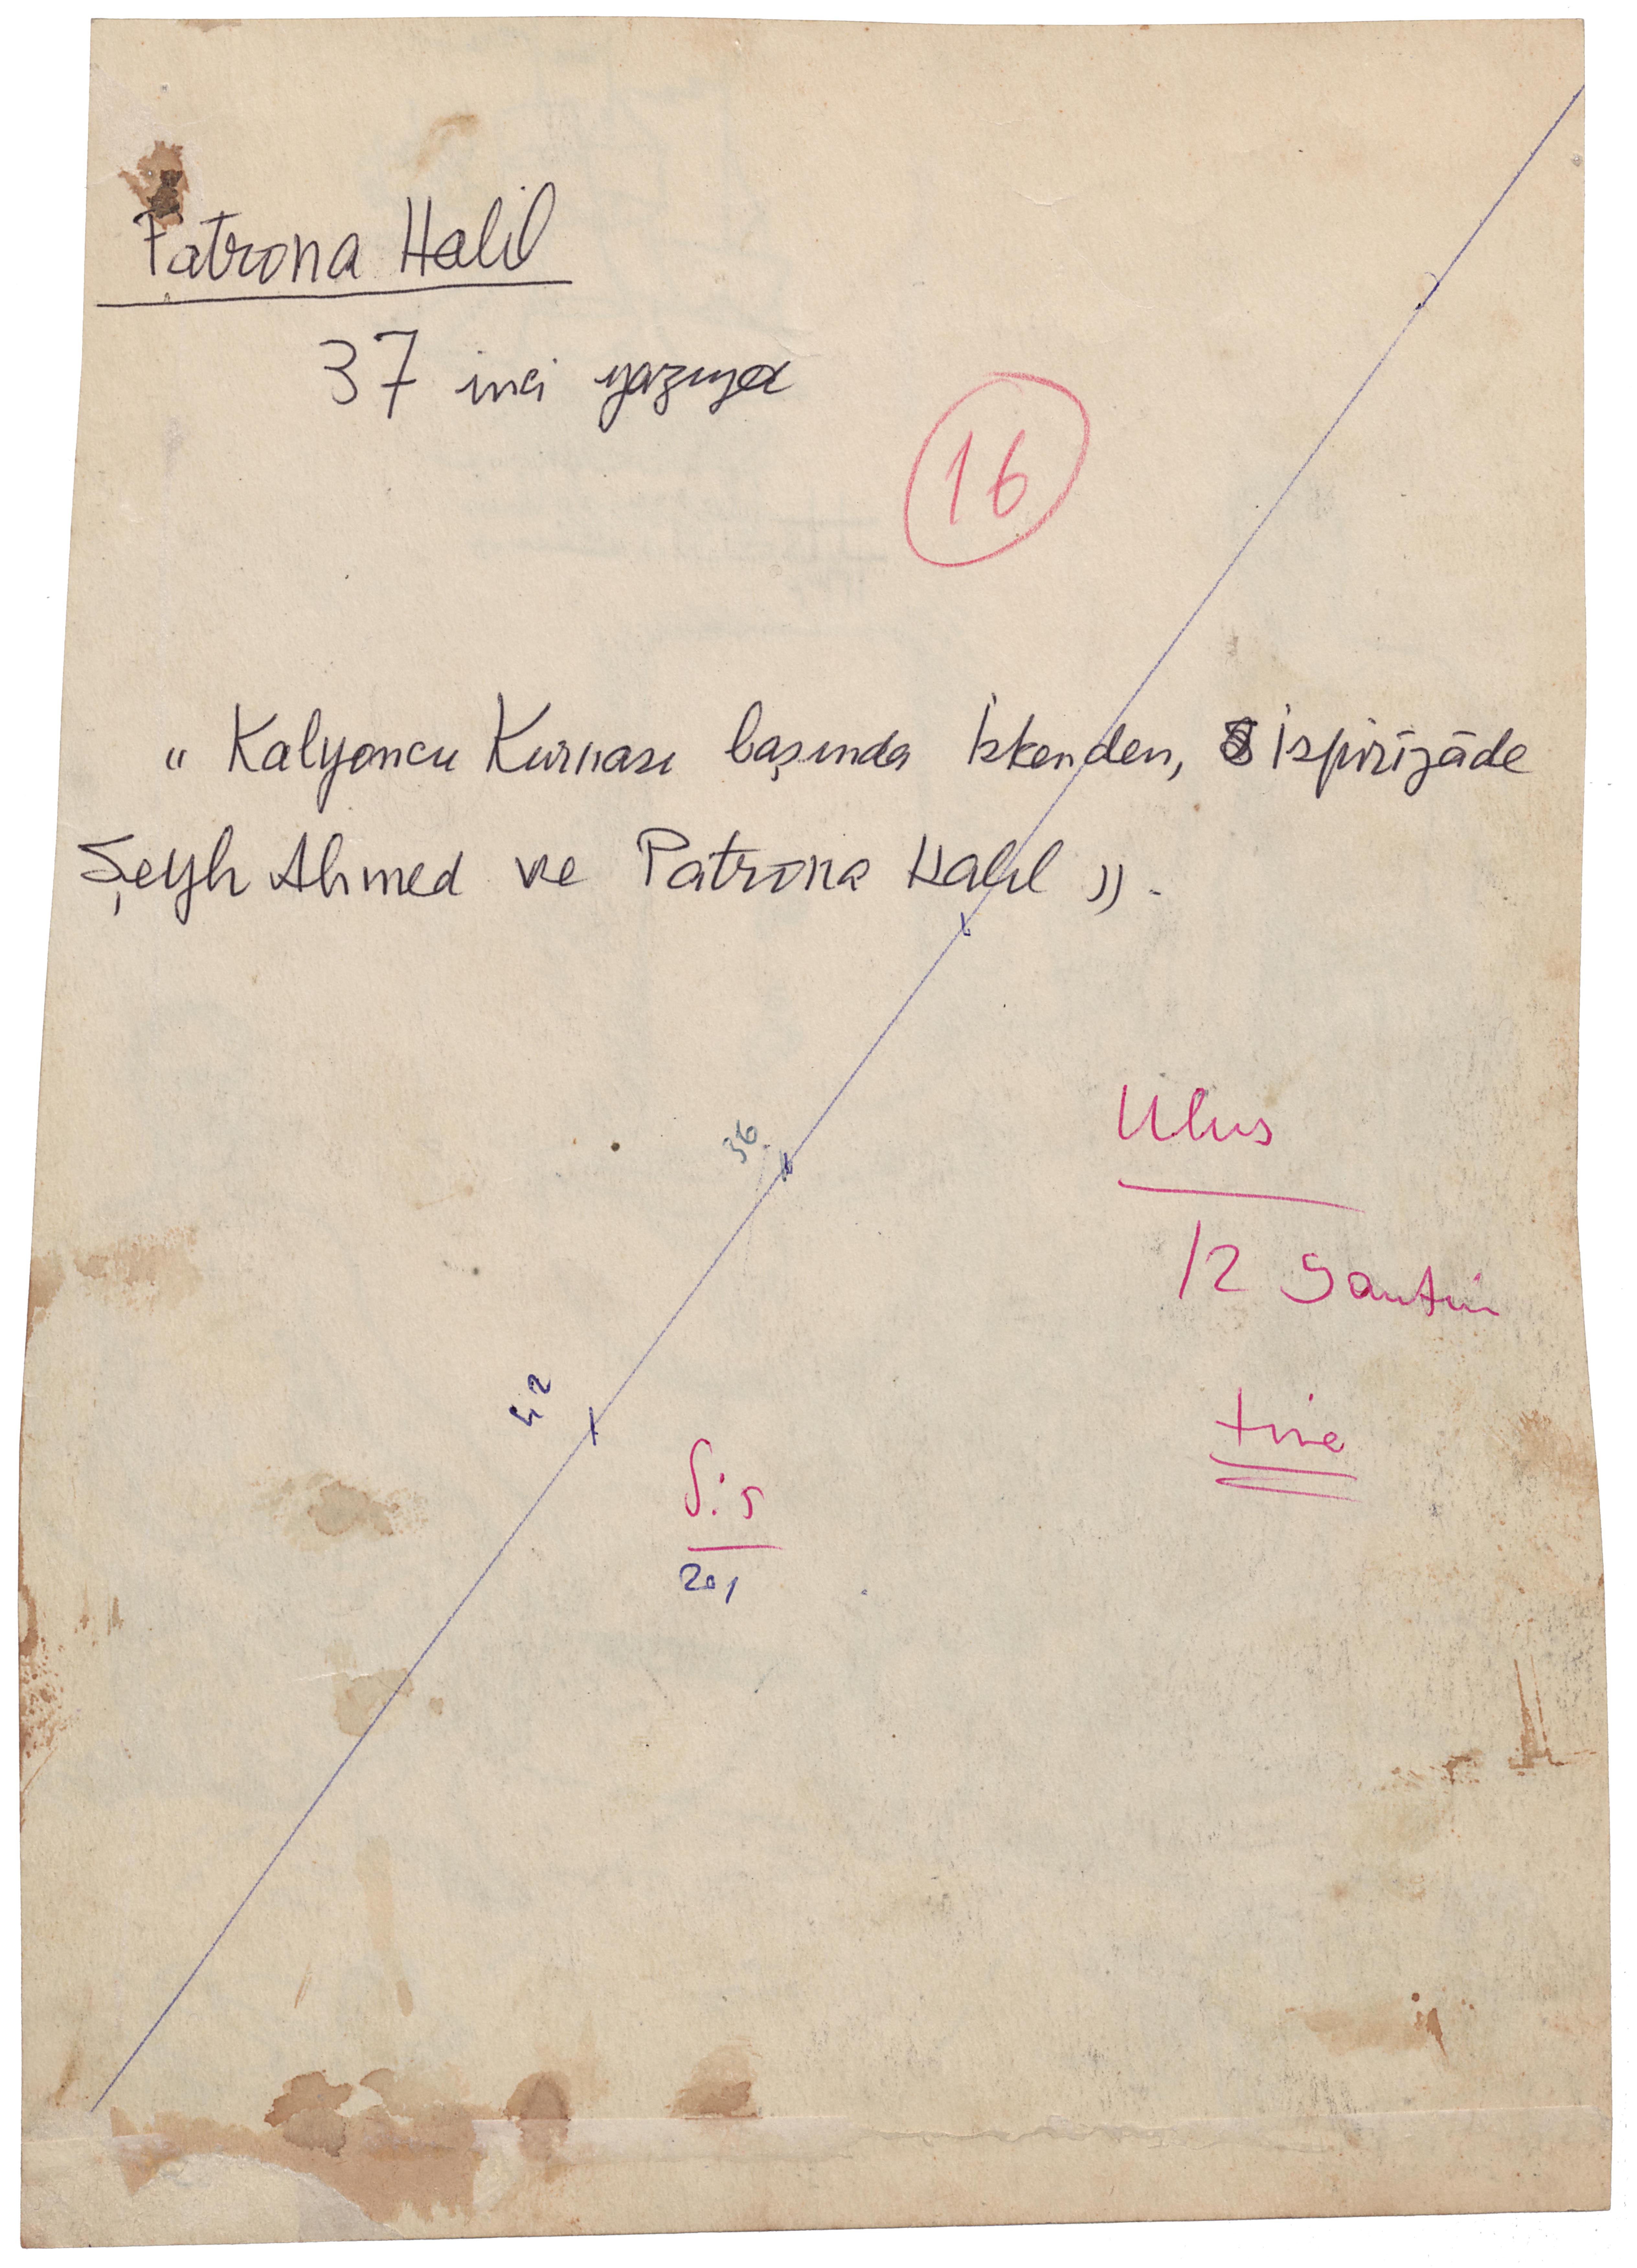 Patrona Halil
37 inci yazıya
16
"Kalyoncu Kurnası başında İskenden, İspirîzâde
Şeyh Ahmed ve Patrona Halil".
36
Ulus
12 Santim
42
tire
201